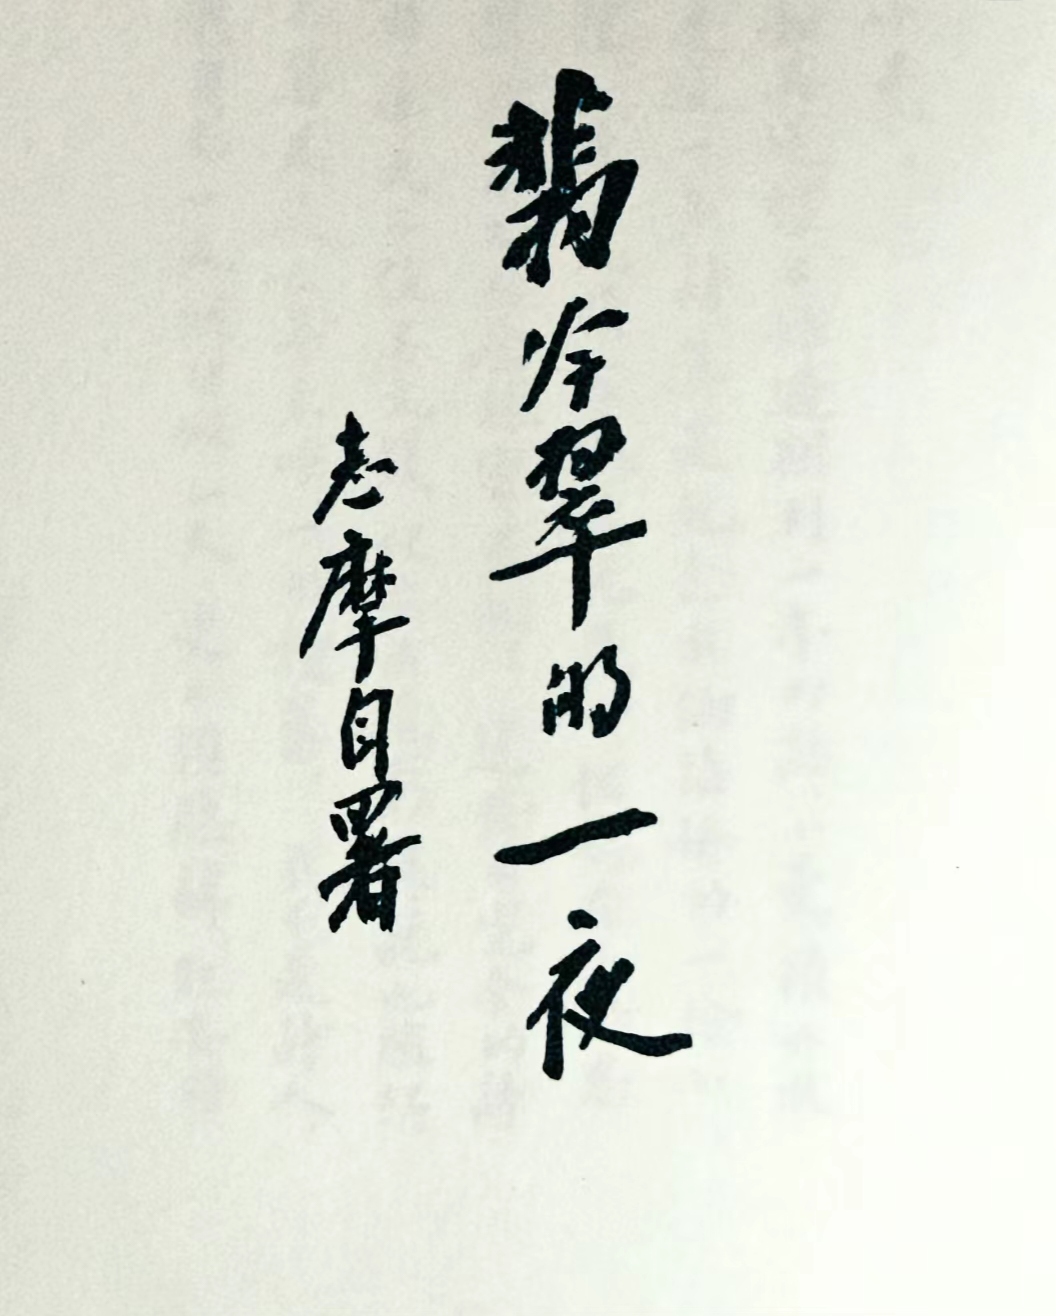 翡冷翠的一夜
志摩自署